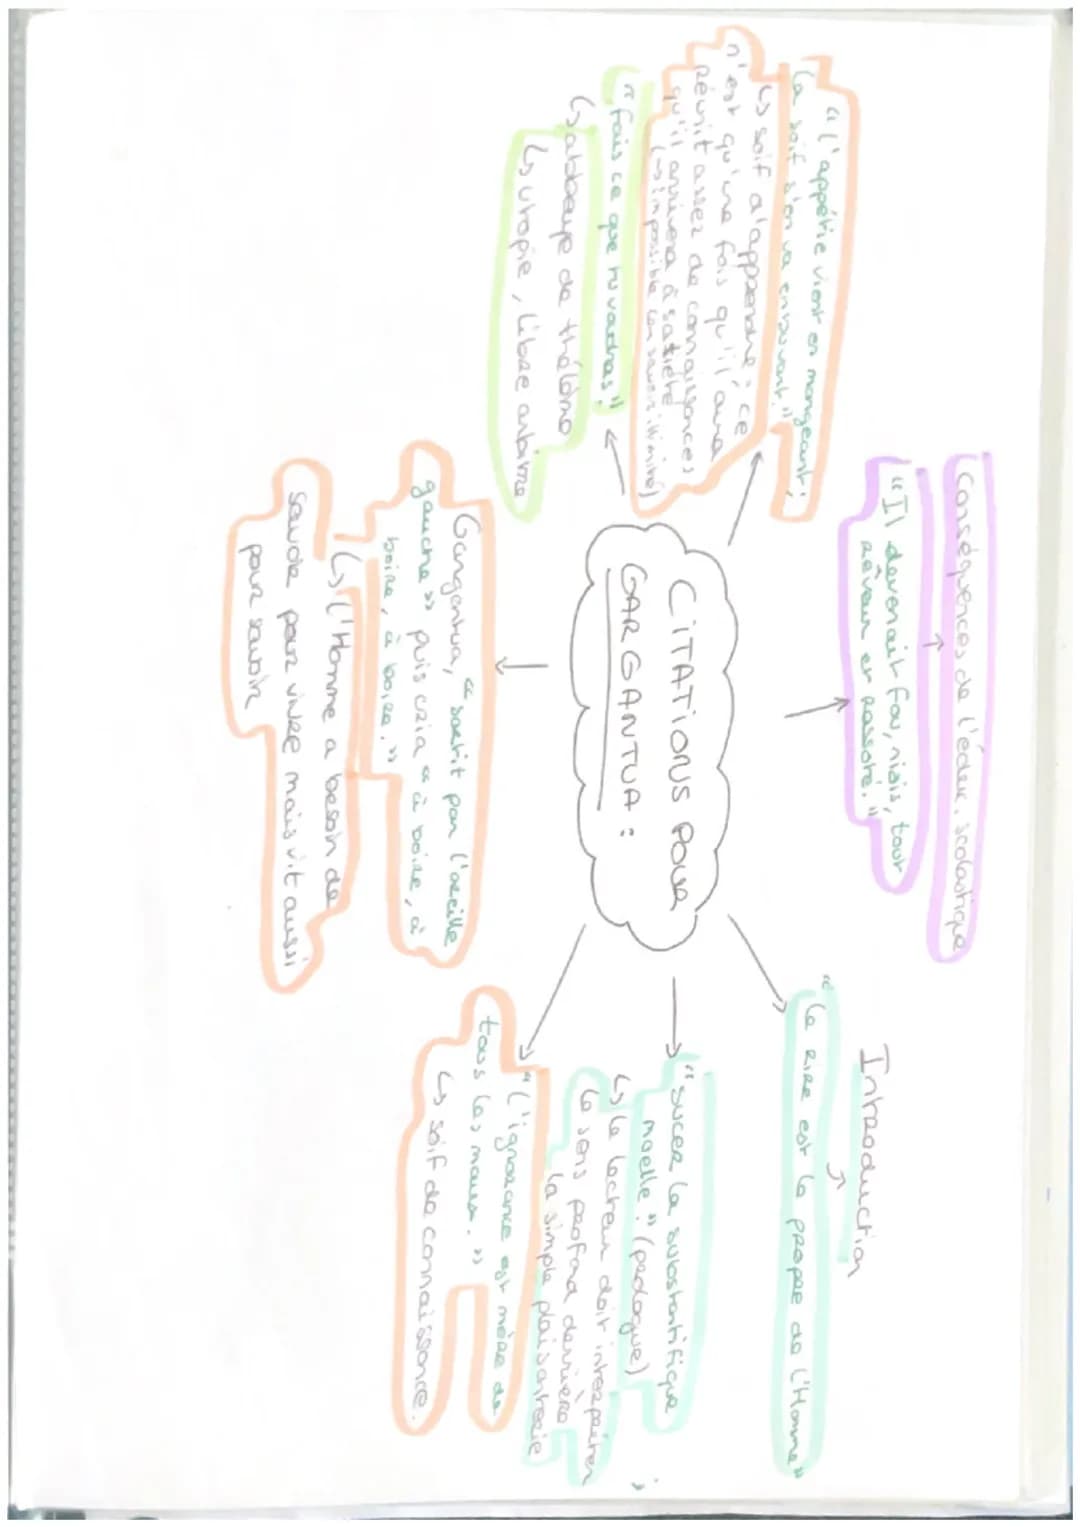 Conséquences de l'éduc. scolastique
"Il devenait fou, niais, tout
rêveur et rassoté."
"l'appétie vient en mangeant;
la soif s'en va en buvant."
↳ soif d'apprendre; ce
n'est qu'une fois qu'il aura
réunit assez de connaissances
qu'il arrivera à satiété
(→ impossible car savoir illimité)
"fais ce que tu voudras"
↳ abbaye de thélème
↳ utopie, libre arbitre
CITATIONS POUR
GARGANTUA :
Introduction
"Le rire est le propre de l'Homme"
"sucer la substantifique
moelle." (prologue)
↳ le lecteur doit interpréter
le sens profond derrière
la simple plaisanterie
"L'ignorance est mère de
tous les maux."
↳ soif de connaissance.
Gargantua, "sortit par l'oreille
gauche" puis cria "à boire, à
boire, à boire."
↳ l'Homme a besoin de
savoir pour vivre mais vit aussi
pour savoir